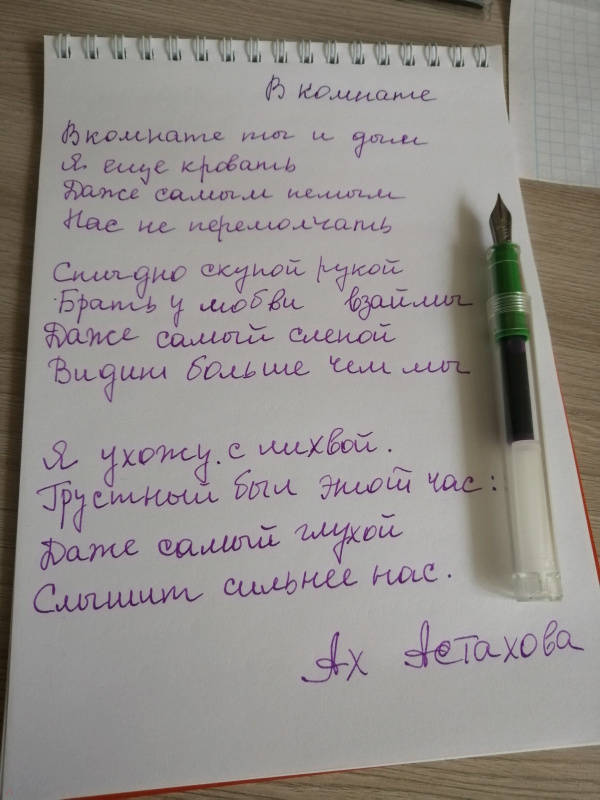 В комнате
В комнате ты и дым
Я еще кровать
Даже самым немым
Нас не перемолчать
Стыдно скупой рукой
Брать у любви взаймы
Даже самый слепой
Видит больше чем мы
Я ухожу. с лихвой.
Грустный был этот час:
Даже самый глухой
Слышит сильнее нас.
Ах Астахова